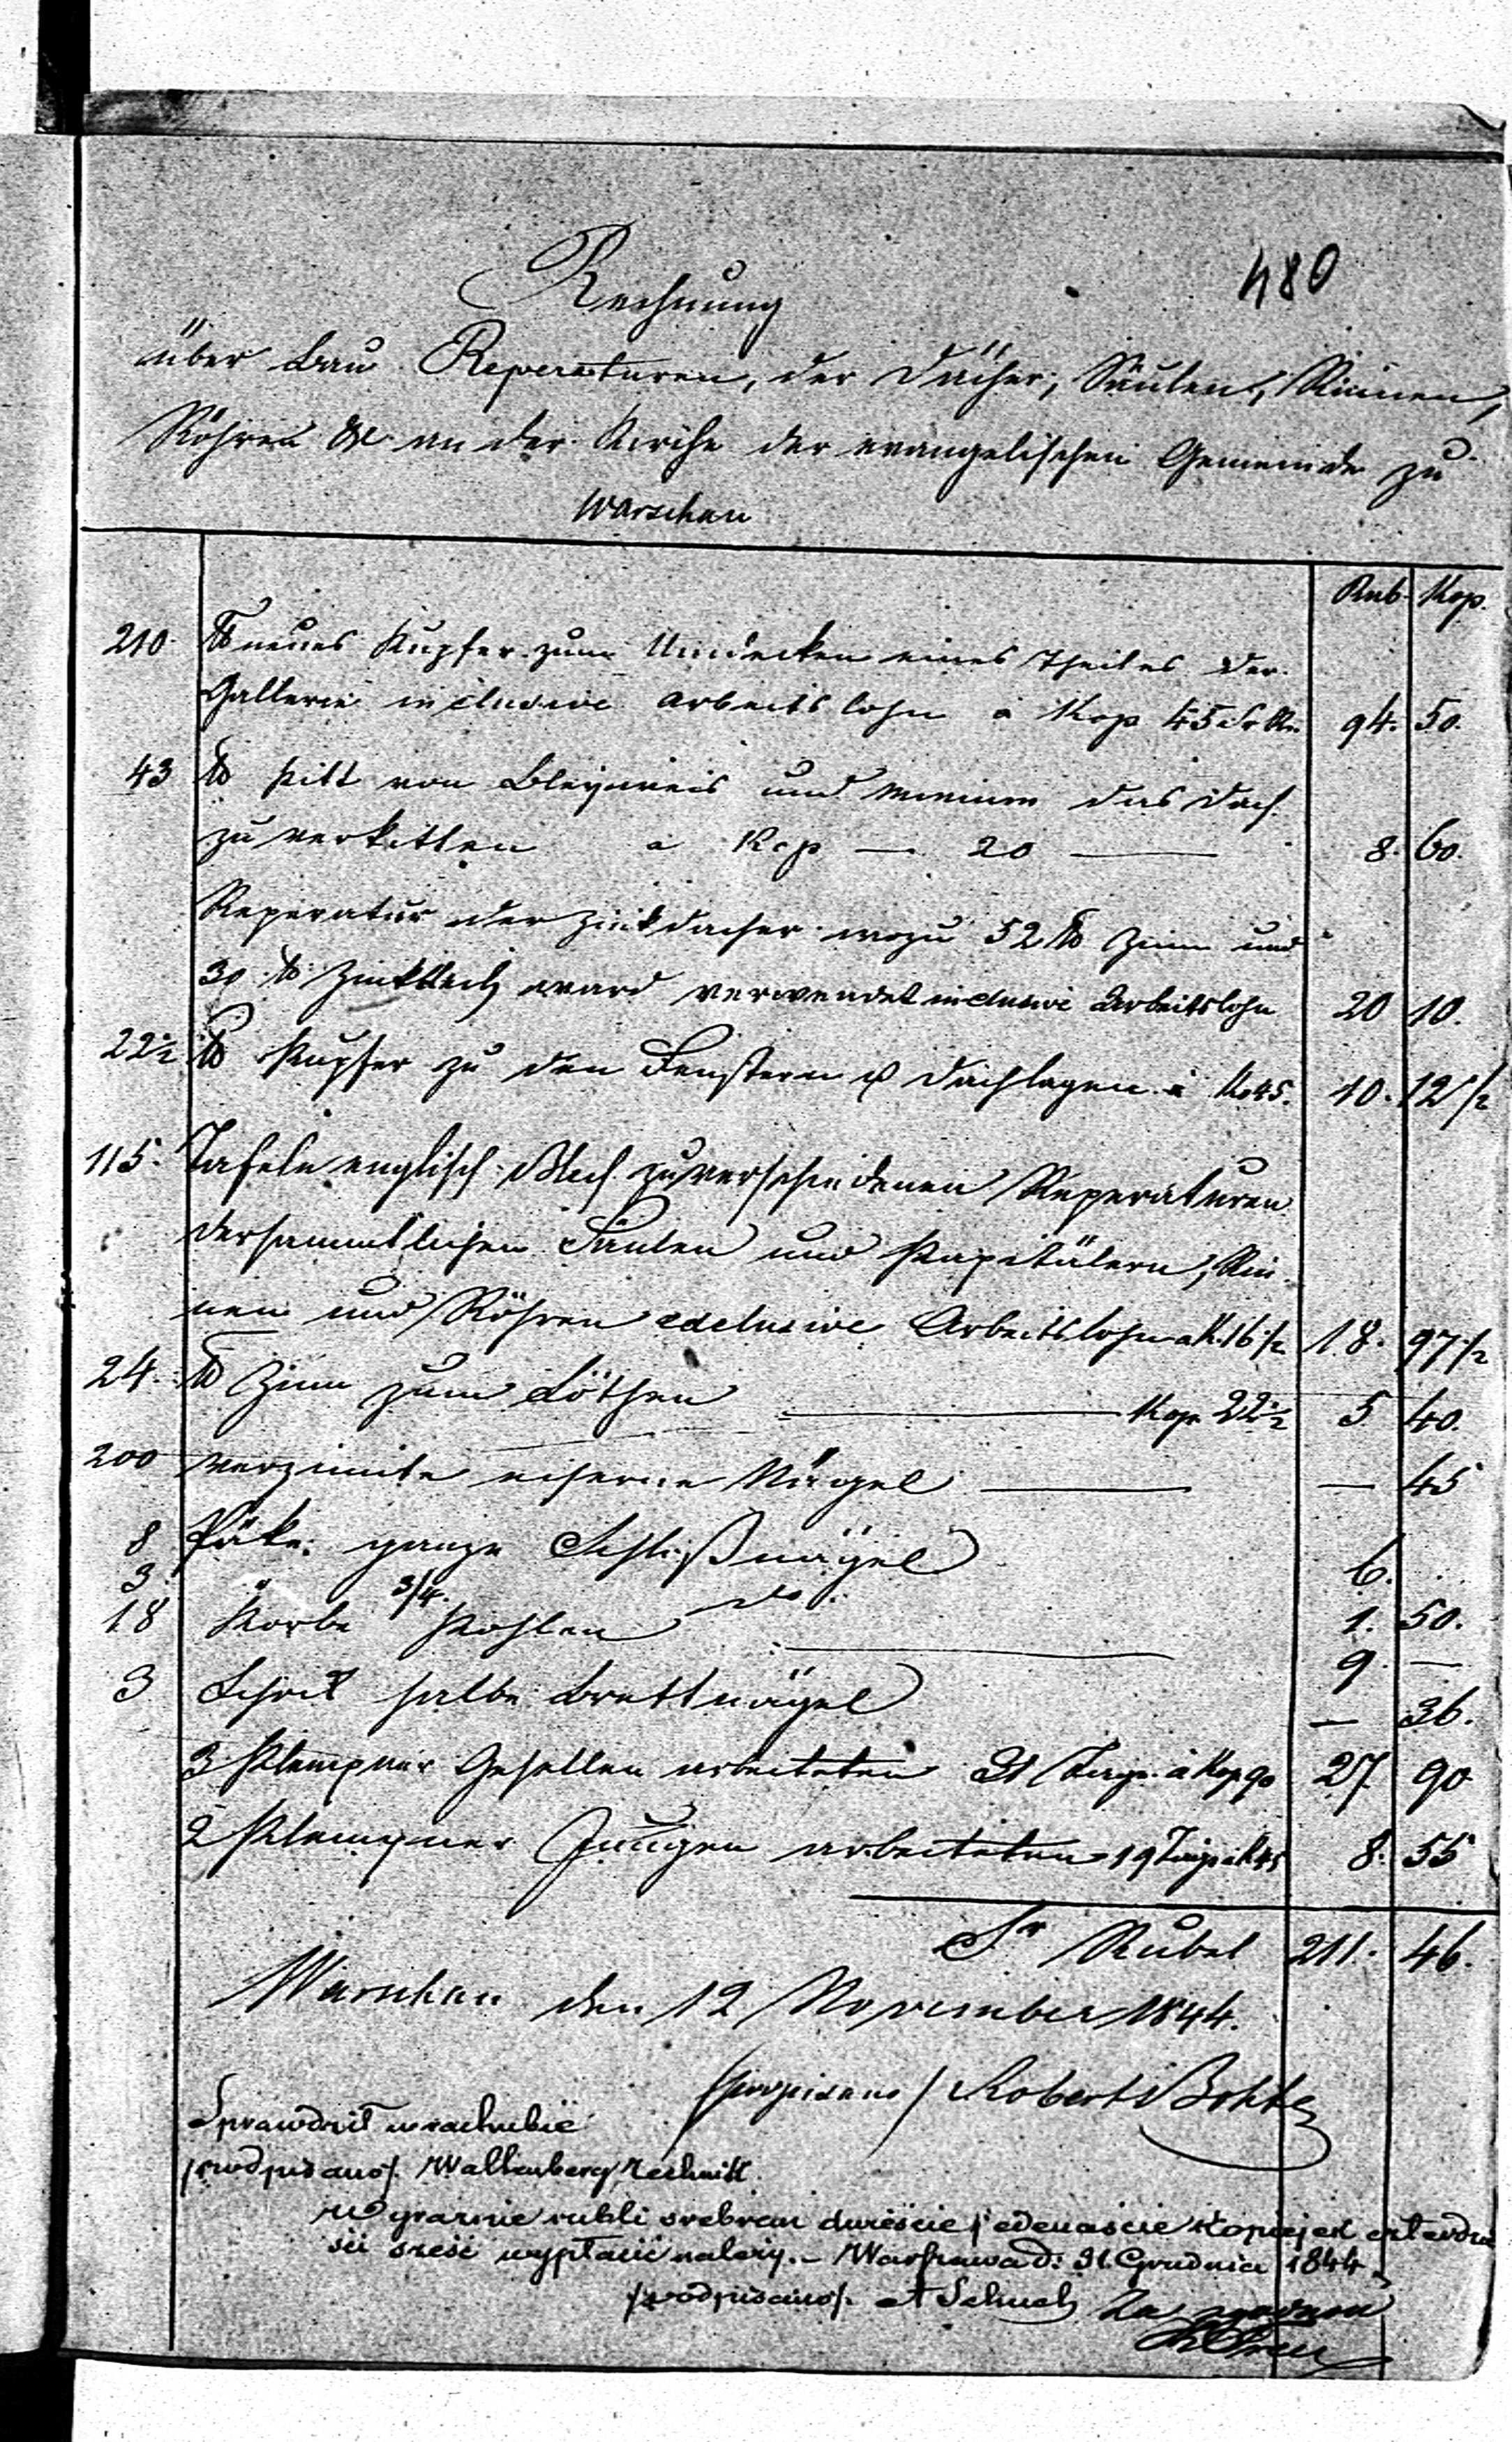 480
Rechnung
über Bau Reperaturen, der Dächer, Säulen, Rinnen,
Röhren &c an der Kirche der evangelischen Gemeinde zu
Warschau
Rub. Kop.
210. ℔ neues Kupfer zum Umdecken eines Theiles der
Gallerie inclusive Arbeitslohn a Kop 45 94. 50.
43 ℔ Kitt von Bleyweis und Minium das Dach
zu verkitten a Kop — 20 — 8. 60.
Reperatur der Zinkdächer wozu 52 ℔ Zinn und
30 ℔ Zinkblech ward verwendet inclusive Arbeitslohn 20 10.
22½ ℔ Kupfer zu den Fenstern & Dachlagen à Ko 45. 10. 12½
115. Tafeln englisch Blech zu verschiedenen Reperaturen
der sammtlichen Säulen und Kapitälern, Rin
nen und Röhren exclusive Arbeitslohn a K. 16½ 18. 97½
24. ℔ Zinn zum Löthen — Kop 22½ 5 40.
200 verzinnte eiserne Nägel — — 45
8 Päke ganze Schloßnägel 6.
3. " 3/4 do. 1. 50.
18 Korbe Kohlen — 9. —
3 Schock halbe Brettnägel — 36.
3 Klempner Gesellen arbeiteten 31 Tage à Kop 90 27 90
2 Klempner Jungen arbeiteten 19 Tage a K 45 8. 55
Sr Rubel 211. 46.
Warschau den 12 November 1844.
/podpisano/ Robert Bohte
Sprawdził w rachubie
/podpisano/. Waltenberg Technik
Wyraźnie rubli srebrem dwieście jedenaście kopiejek czterdzie
ści sześć wypłacić należy. – Warszawa d: 31. Grudnia 1844
/podpisano/. A Schuch Za zgodność